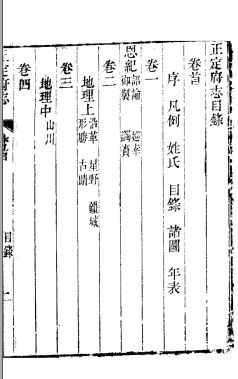 正定府志目錄
卷首
序 凡例 姓氏 目錄 諸圖 年表
卷一
恩紀 詔諭 巡幸 御製 蠲賚
卷二
地理上 沿革 星野 疆域 形勝 古蹟
卷三
地理中 山川
卷四
正定府志 卷首 目錄 一